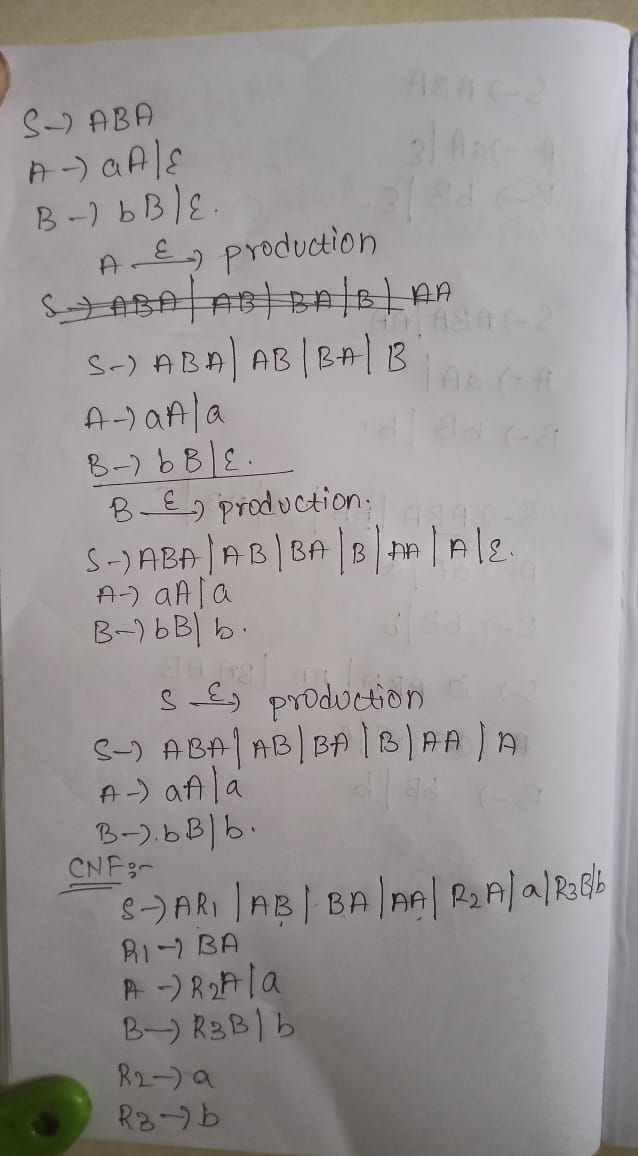 S→ ABA
A→ aA|ε
B→ bB|ε.
A ε→ production
S→ ABA|AB|BA|B|AA
S→ ABA|AB|BA|B
A→ aA|a
B→ bB|ε.
B ε→ production:
S→ ABA|AB|BA|B|AA|A|ε.
A→ aA|a
B→ bB|b.
S ε→ production
S→ ABA|AB|BA|B|AA|A
A→ aA|a
B→ bB|b.
CNF:-
S→ AR1|AB|BA|AA|R2A|a|R3B|b
R1→ BA
A→ R2A|a
B→ R3B|b
R2→ a
R3→ b